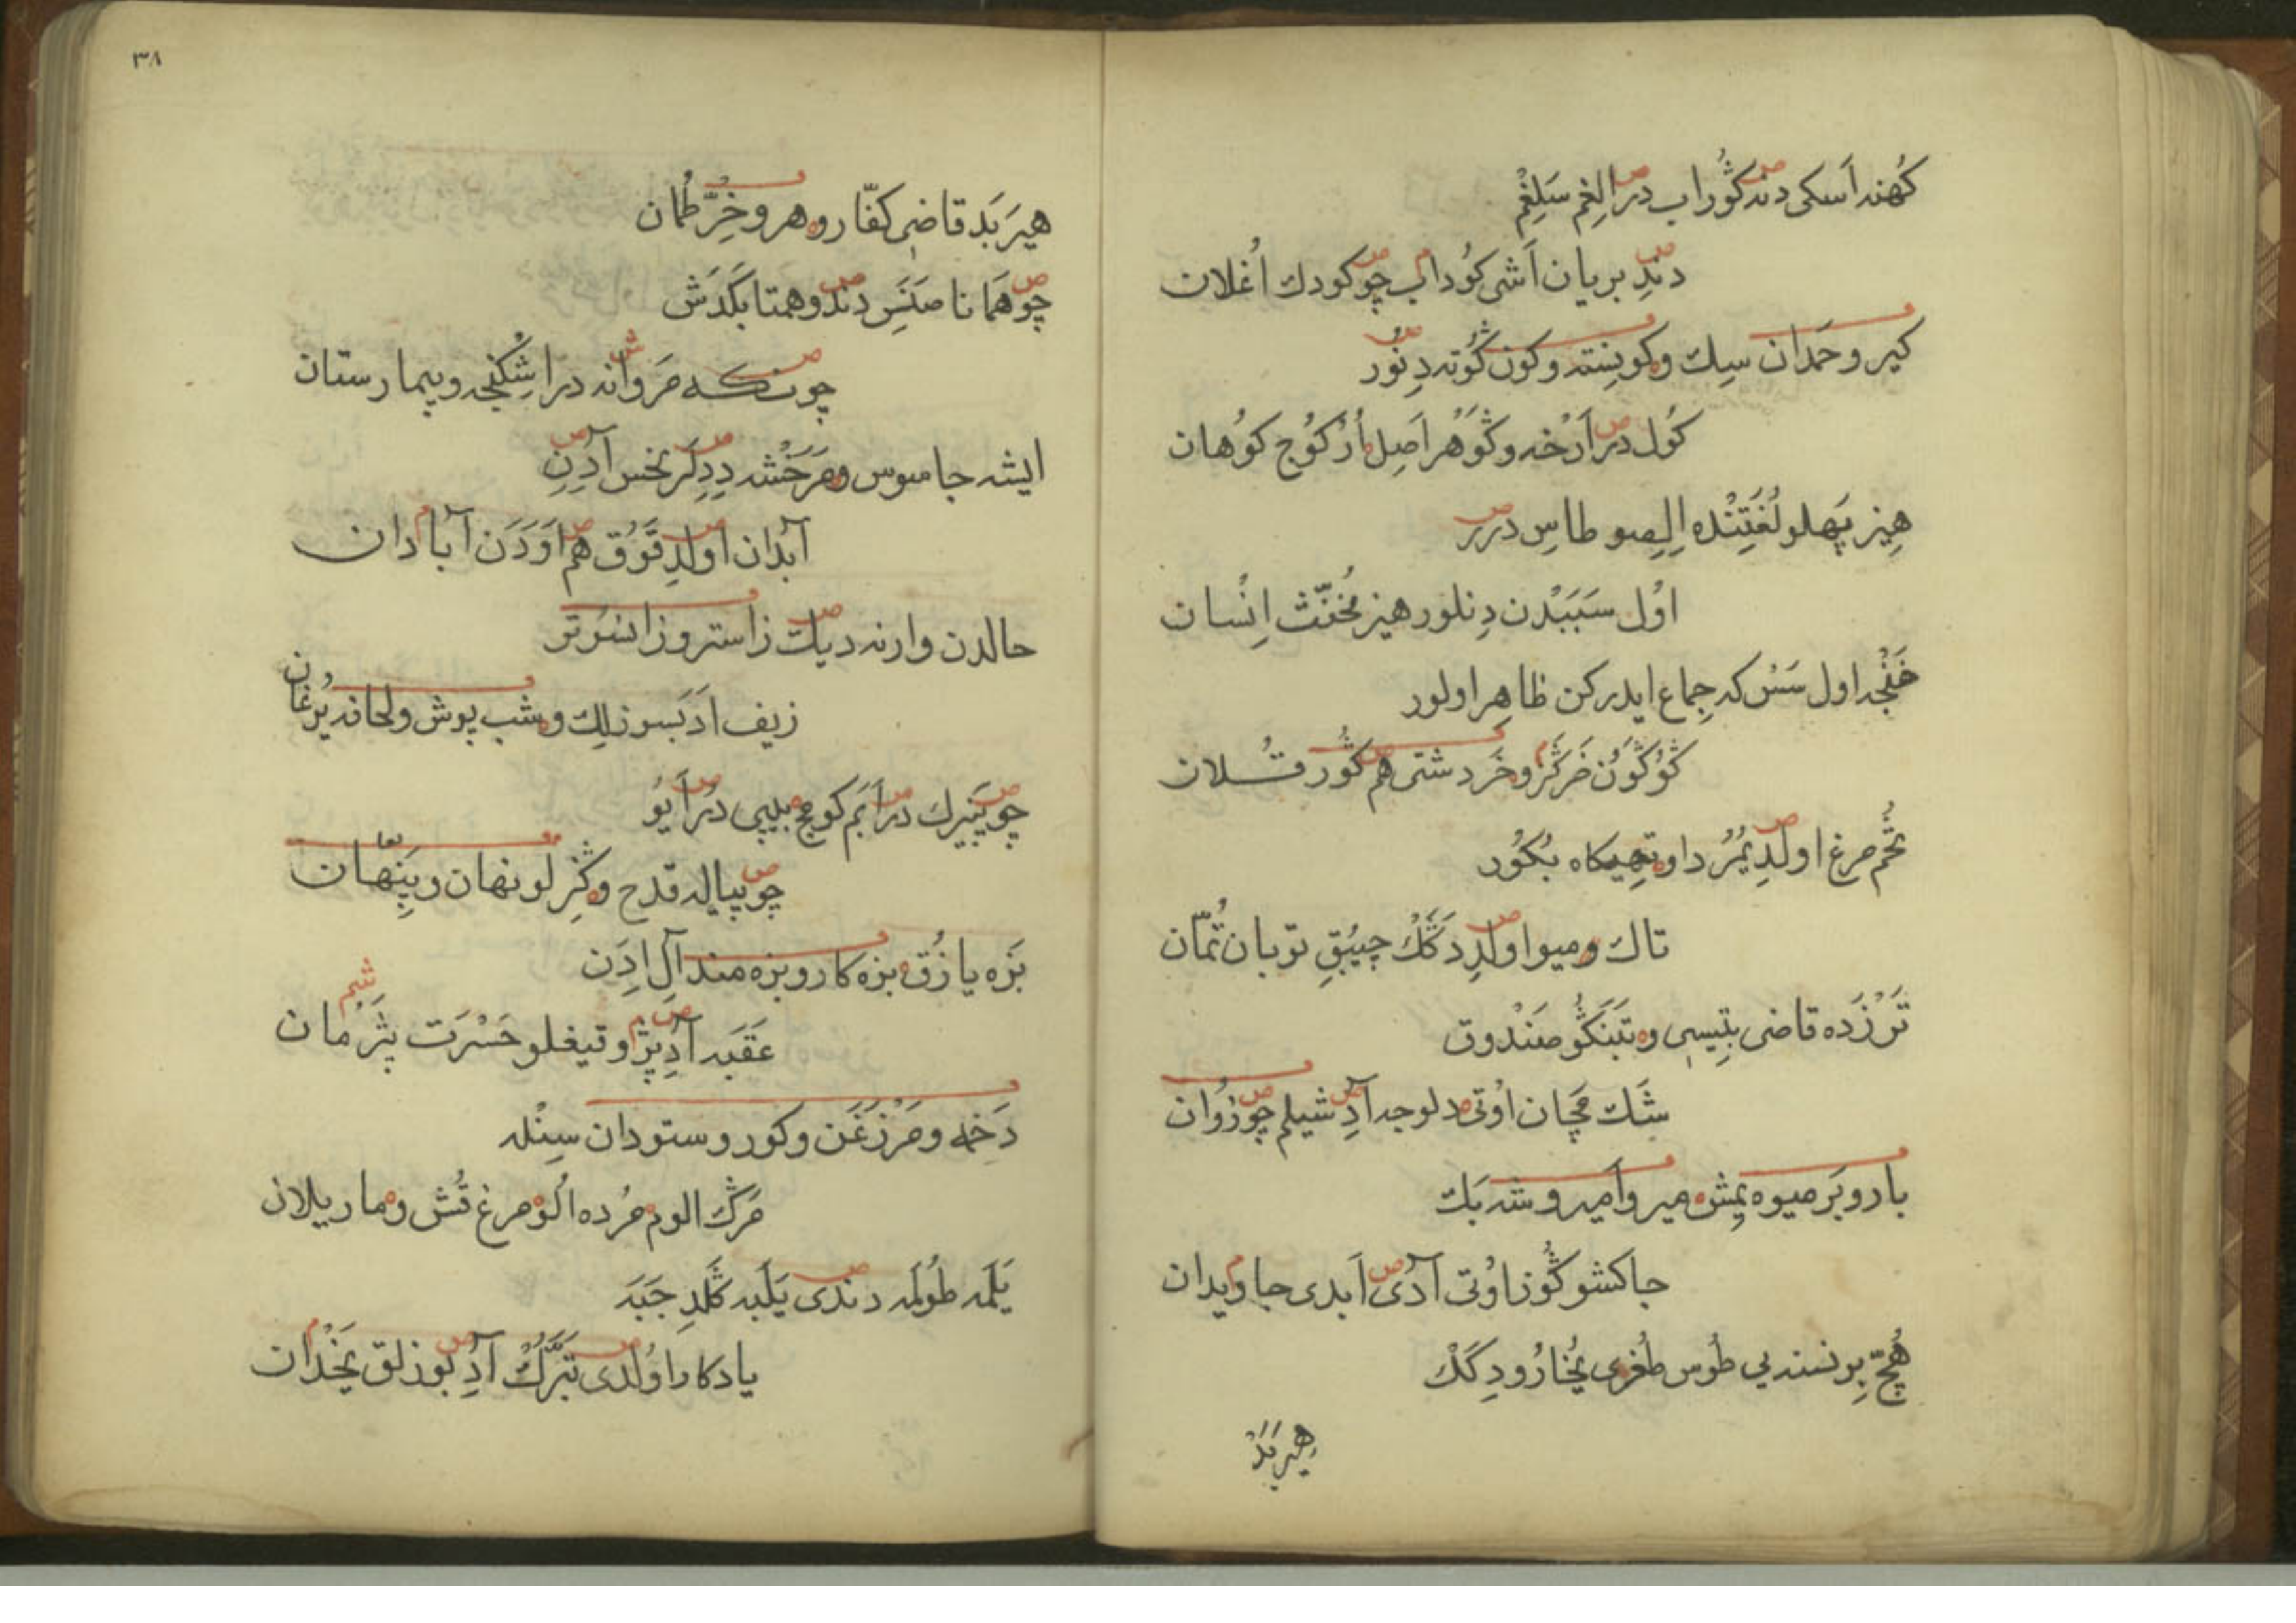 كُهنه اَسكى دند كُوراب در اِلغم سَلِغم
دندِ بريان اَشى كُوداب چو كودك اُغلان
كير و حَمدان سِك و كون بنته و كون كُوته دِنُور
كُول در اَرْخه و كَوهر اَصِل اُز كوُج كوُهان
هِيز پَهلو لُغَتِنْده اِلِصو طاسِ درر
اوُل سَبَبْدن دِنلور هيز مُخنّث اِنْسان
خَنْجه اول سَسْ كه جِماع ايدركن ظاهِر اولور
خَركُز و خَر دشتى هم كُور قُلان
تخُم مرغ اولدِ يمُرْدا و تهِيكاه بُكوُر
تاك و ميو اولدِ دَكَك چيُبُقِ توبان تُمّان
تَرْزَده قاضى بتِيسى و تَبَنكُو صَندوق
شَك مچّان اوُتى دلوجه آدِ شيلم چو زُوان
بار و بَر ميوه يمِش مير و اَمير و شه بَك
جاكشو كُوز اوُتى آدى اَبدى جاويدان
هُچّ بِر نسنه بى طوُس طُغرى يُخارُو دِكَك
هيربَدْ
٣٨
هيرَبَد قاضىِ كفّار و هرو خِرّ طُمان
چو هَمانا صَنَسِ دند و همتا بكَدَش
چونكه مَروانه در اِشْكنجه و بيمارستان
ايشه جاسوس و مَرَخشه دِدِلر نحس آدِنِ
آبدان اولدِ قَوُق هم اَوَدَن آبادان
حالدن وارنه ديك زاستر و زانسُوتر
زيف اَدَبسوزلك و شب پوش و لحافه يُرغان
چو پَنيرك در اَبَم كوج بيپى در اَيوُ
چو پياله قدح و كِزلو نهان و پِنهان
بَزه يازُق بزه كار و بزه مند آلِ ادَن
عَقَبه آدِ پژ و قيغلو حَسْرَت پَژمان
دَخمه و مَرْزَغَن و كور و ستودان سِنْله
مَرك الوم مُرده اُلو مرغ قُش و مار يلان
يَلمَه طوُلمَه دندى يَلَبه كَلدِ جَبَه
يادكار اوُلدى تَبَرّك آدِ بوزلق يخْدان